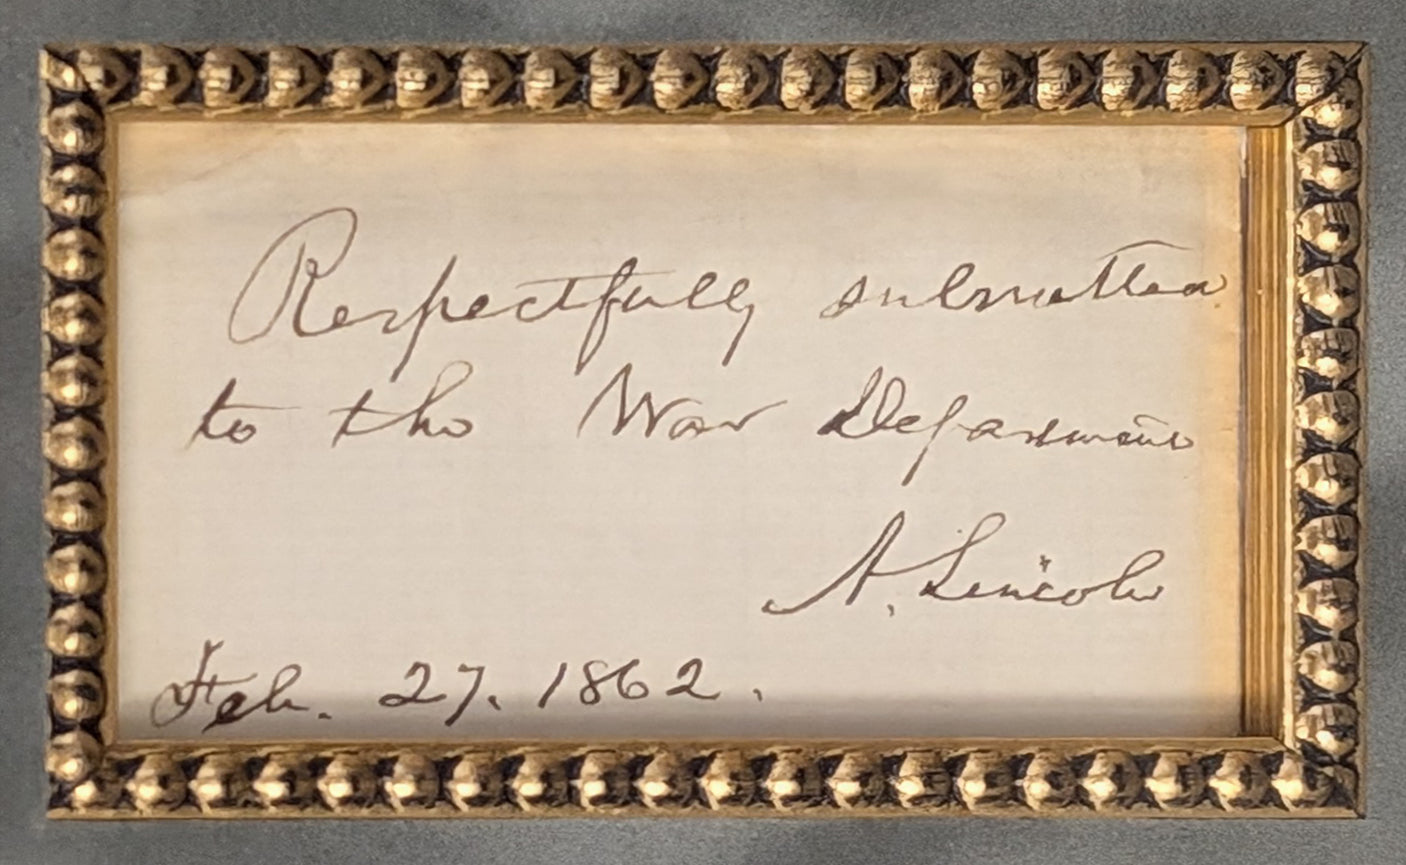 Respectfully submitted
to the War Department
A. Lincoln
Feb. 27. 1862.